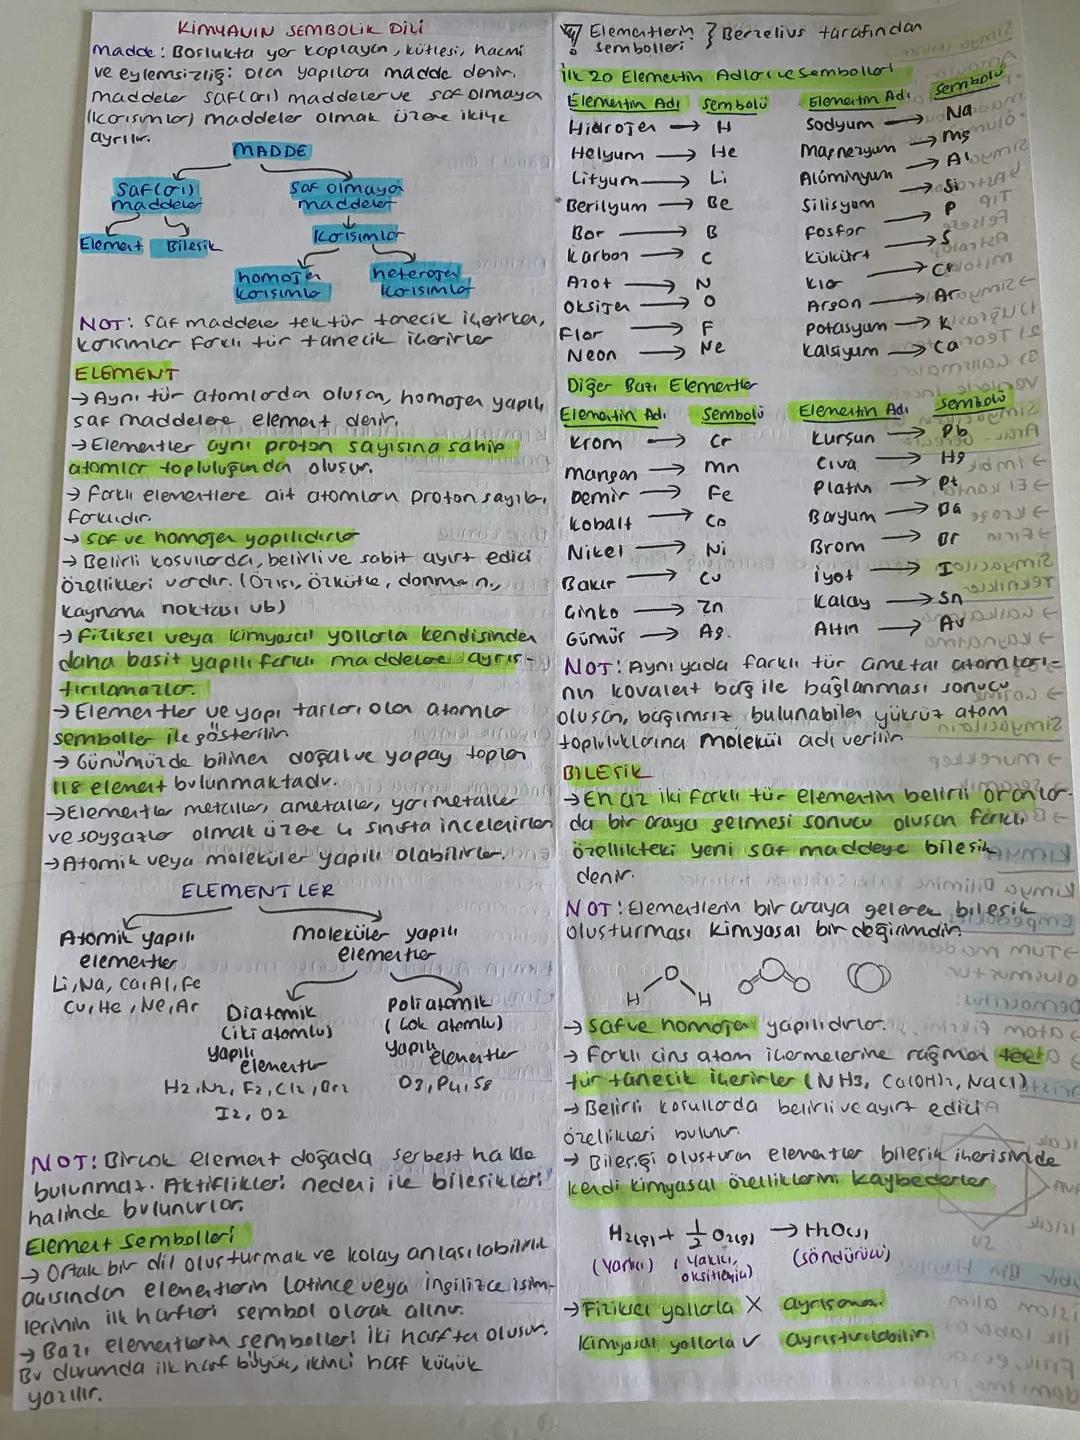 KİMYANIN SEMBOLİK DİLİ
Madde: Boşlukta yer kaplayan, kütlesi, hacmi
ve eylemsizliği olan yapılara madde denir.
maddeler saf(arı) maddeler ve saf olmayan
(karışımlar) maddeler olmak üzere ikiye
ayrılır.
MADDE
Saf(arı)
maddeler
Saf olmayan
maddeler
Element
Bileşik
Karışımlar
homojen
karışımlar
heterojen
karışımlar
NOT: Saf maddeler tek tür tanecik içerirken,
karışımlar farklı tür tanecik içerirler
ELEMENT
→ Aynı tür atomlardan oluşan, homojen yapılı,
saf maddelere element denir.
→ Elementler aynı proton sayısına sahip
atomlar topluluğundan oluşur.
→ Farklı elementlere ait atomların proton sayıları
farklıdır.
→ Saf ve homojen yapılıdırlar
→ Belirli koşullarda, belirli ve sabit ayırt edici
özellikleri vardır. (Özısı, özkütle, donma n.,
kaynama noktası vb)
→ Fiziksel veya kimyasal yollarla kendisinden
daha basit yapılı farklı maddelere ayrış-
tırılamazlar.
→ Elementler ve yapı taşları olan atomlar
semboller ile gösterilir
→ Günümüzde bilinen doğal ve yapay toplam
118 element bulunmaktadır.
→ Elementler metaller, ametaller, yarı metaller
ve soygazlar olmak üzere 4 sınıfta incelenirler
→ Atomik veya moleküler yapılı olabilirler.
ELEMENTLER
Atomik yapılı
elementler
Li, Na, Ca, Al, Fe
Cu, He, Ne, Ar
Moleküler yapılı
elementler
Diatomik
(iki atomlu)
yapılı
elementler
H2, N2, F2, Cl2, Br2
I2, O2
Poliatomik
(çok atomlu)
yapılı
elementler
O3, P4, S8
NOT: Birçok element doğada serbest halde
bulunmaz. Aktiflikleri nedeni ile bileşikleri
halinde bulunurlar.
Element Sembolleri
→ Ortak bir dil oluşturmak ve kolay anlaşılabilirlik
açısından elementlerin Latince veya İngilizce isim-
lerinin ilk harfleri sembol olarak alınır.
→ Bazı elementlerin sembolleri iki harften oluşur.
Bu durumda ilk harf büyük, ikinci harf küçük
yazılır.
Elementlerin
sembolleri } Berzelius tarafından
İlk 20 Elementin Adları ve Sembolleri
Elementin Adı Sembolü
Hidrojen → H
Helyum → He
Lityum → Li
Berilyum → Be
Bor → B
Karbon → C
Azot → N
Oksijen → O
Flor → F
Neon → Ne
Elementin Adı Sembolü
Sodyum → Na
Magnezyum → Mg
Alüminyum → Al
Silisyum → Si
Fosfor → P
Kükürt → S
Klor → Cl
Argon → Ar
Potasyum → K
Kalsiyum → Ca
Diğer Bazı Elementler
Elementin Adı Sembolü
Krom → Cr
Mangan → Mn
Demir → Fe
Kobalt → Co
Nikel → Ni
Bakır → Cu
Çinko → Zn
Gümüş → Ag
Elementin Adı Sembolü
Kurşun → Pb
Civa → Hg
Platin → Pt
Baryum → Ba
Brom → Br
İyot → I
Kalay → Sn
Altın → Au
NOT: Aynı yada farklı tür ametal atomları-
nın kovalent bağ ile bağlanması sonucu
oluşan, bağımsız bulunabilen yüksüz atom
topluluklarına molekül adı verilir
BİLEŞİK
→ En az iki farklı tür elementin belirli oranlar-
da bir araya gelmesi sonucu oluşan farklı
özellikteki yeni saf maddeye bileşik
denir.
NOT: Elementlerin bir araya gelerek bileşik
oluşturması kimyasal bir değişimdir.
O
H H
→ Saf ve homojen yapılıdırlar.
→ Farklı cins atom içermelerine rağmen tek
tür tanecik içerirler (NH3, Ca(OH)2, NaCl)
→ Belirli koşullarda belirli ve ayırt edici
özellikleri bulunur.
→ Bileşiği oluşturan elementler bileşik içerisinde
kendi kimyasal özelliklerini kaybederler
H2(g) + 1/2 O2(g) → H2O(s)
(Yanıcı) (Yakıcı, oksitleyici) (söndürücü)
→ Fiziksel yollarla X ayrışamaz
Kimyasal yollarla ✓ ayrıştırılabilir